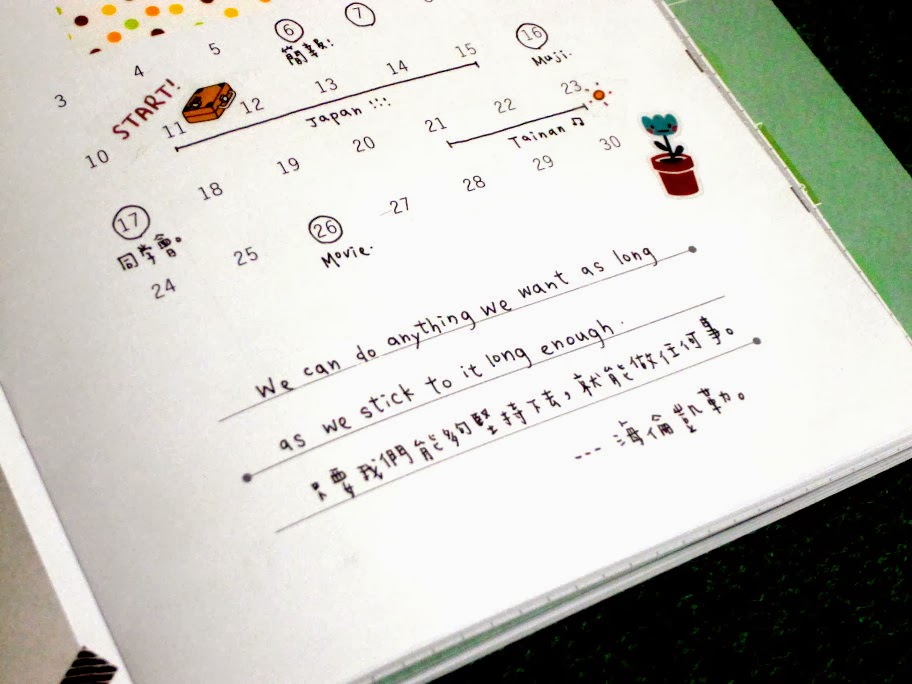 3 4 5 6 7
簡報!
START!
10 11 12 13 14 15 16
Japan !!!
Muji.
17 18 19 20 21 22 23
同學會。
Tainan ♫
24 25 26 27 28 29 30
Movie.
We can do anything we want as long
as we stick to it long enough.
只要我們能夠堅持下去，就能做任何事。
--- 海倫凱勒。